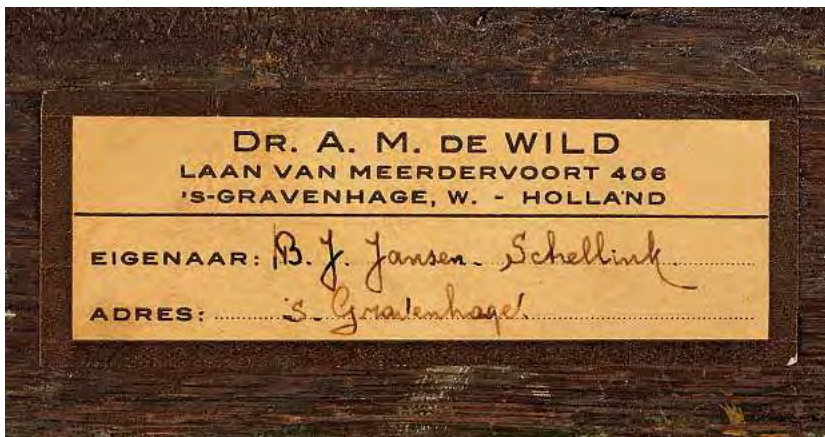 DR. A. M. DE WILD
LAAN VAN MEERDERVOORT 406
'S-GRAVENHAGE, W. - HOLLAND
EIGENAAR: B. J. Jansen - Schellink
ADRES: 's-Gravenhage